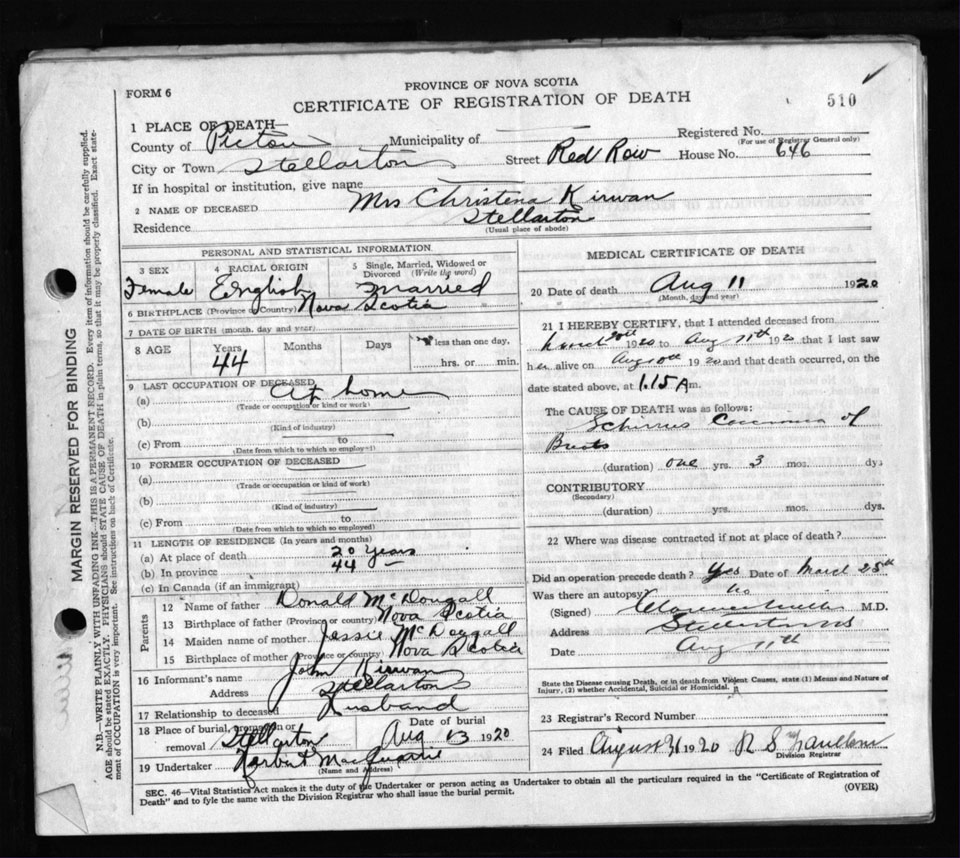 PROVINCE OF NOVA SCOTIA
FORM 6
CERTIFICATE OF REGISTRATION OF DEATH
510
1 PLACE OF DEATH—
County of Pictou Municipality of Registered No.
(For use of Registrar General only)
City or Town Stellarton Street Red Row House No. 646
If in hospital or institution, give name
2 NAME OF DECEASED Mrs Christena Kirwan
Residence Stellarton
(Usual place of abode)
PERSONAL AND STATISTICAL INFORMATION.
3 SEX 4 RACIAL ORIGIN 5 Single, Married, Widowed or Divorced (Write the word)
Female English Married
6 BIRTHPLACE (Province or Country) Nova Scotia
7 DATE OF BIRTH (month, day and year)
8 AGE Years Months Days If less than one day,
44 hrs. or min.
9 LAST OCCUPATION OF DECEASED
(a) At home
(Trade or occupation or kind of work)
(b)
(Kind of industry)
(c) From to
(Date from which to which so employed)
10 FORMER OCCUPATION OF DECEASED
(a)
(Trade or occupation or kind of work)
(b)
(Kind of industry)
(c) From to
(Date from which to which so employed)
11 LENGTH OF RESIDENCE (In years and months)
(a) At place of death 20 Years
(b) In province 44
(c) In Canada (if an immigrant)
Parents
12 Name of father Donald McDougall
13 Birthplace of father (Province or country) Nova Scotia
14 Maiden name of mother Jessie McDougall
15 Birthplace of mother (Province or country) Nova Scotia
16 Informant's name John Kirwan
Address Stellarton
17 Relationship to deceased Husband
18 Place of burial, cremation or removal Stellarton Date of burial Aug 13 1920
19 Undertaker Harbert MacQuarrie
(Name and Address)
MEDICAL CERTIFICATE OF DEATH
20 Date of death Aug 11 1920
(Month, day and year)
21 I HEREBY CERTIFY, that I attended deceased from
March 1920 to Aug 11th 1920 that I last saw
her alive on Aug 10th 1920 and that death occurred, on the
date stated above, at 1.15 A m.
The CAUSE OF DEATH was as follows:
Schirrus Carcinoma of
Breast
(duration) one yrs. 3 mos. dys
CONTRIBUTORY
(Secondary)
(duration) yrs. mos. dys.
22 Where was disease contracted if not at place of death?
Did an operation precede death? Yes Date of March 25th
Was there an autopsy? No
(Signed) M.D.
Address Stellarton NS
Date Aug 11th
State the Disease causing Death, or in death from Violent Causes, state (1) Means and Nature of
Injury, (2) whether Accidental, Suicidal or Homicidal.
23 Registrar's Record Number
24 Filed August 31 1920 R S
Division Registrar
SEC. 46—Vital Statistics Act makes it the duty of the Undertaker or person acting as Undertaker to obtain all the particulars required in the "Certificate of Registration of
Death" and to fyle the same with the Division Registrar who shall issue the burial permit. (OVER)
MARGIN RESERVED FOR BINDING
N.B.—WRITE PLAINLY WITH UNFADING INK—THIS IS A PERMANENT RECORD. Every item of information should be carefully supplied.
AGE should be stated EXACTLY. PHYSICIANS should STATE CAUSE OF DEATH in plain terms, so that it may be properly classified. Exact state-
ment of OCCUPATION is very important. See instructions on back of Certificate.